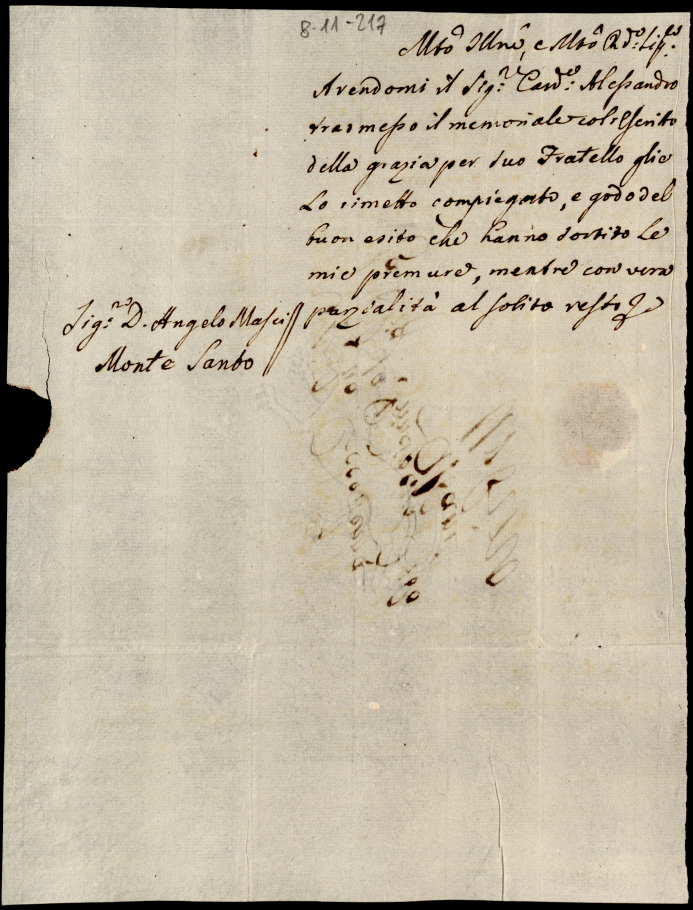 8-11-217
Mto Illre, e Mto Rdo Sigre
Avendomi il Sigre Carde Alessandro
trasmesso il memoriale col rescrito
della grazia per suo Fratello glie
Lo rimetto compiegato, e godo del
buon esito che hanno sortito Le
mie premure, mentre con vera
parzialità al solito resto
Sigre D. Angelo Masci
Monte Santo